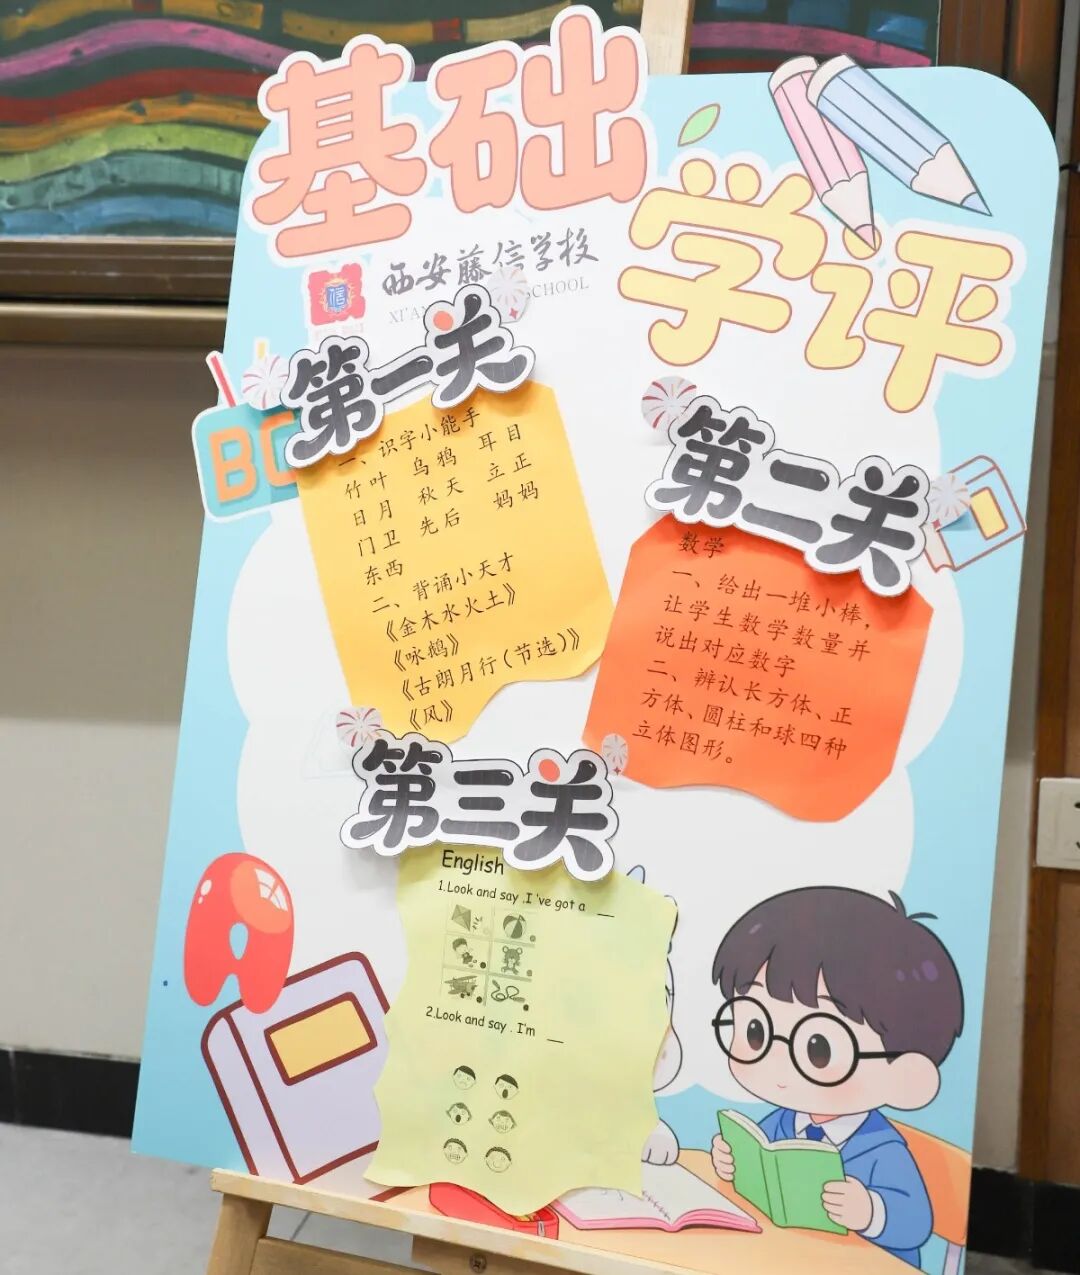 基础
学评
西安藤信学校
SCHOOL
BC
第一关
一、识字小能手
竹叶 乌鸦 耳目
日月 秋天 立正
门卫 先后 妈妈
东西
二、背诵小天才
《金木水火土》
《咏鹅》
《古朗月行(节选)》
《风》
第二关
数学
一、给出一堆小棒，
让学生数学数量并
说出对应数字
二、辨认长方体、正
方体、圆柱和球四种
立体图形。
第三关
English
1.Look and say .I 've got a __
2.Look and say . I'm __
A